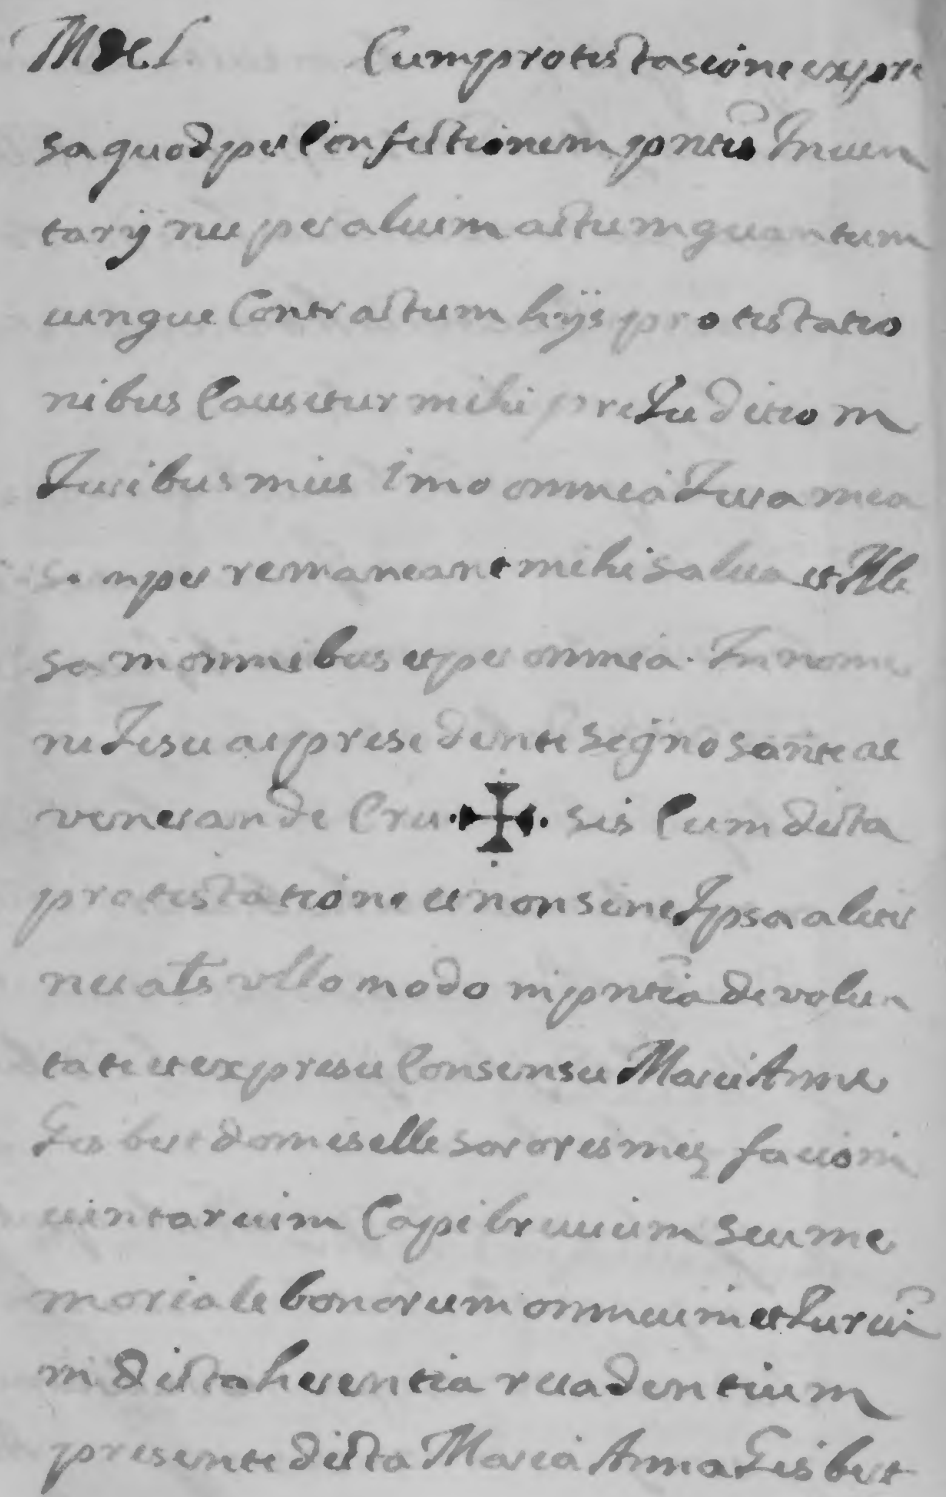 Mdcl. Cum protestasione expre
sa quod per Confectionem pntis Inuen
tarij nu per aluim actum quantum
uinque Contractum hijs protestatio
nibus Causetur mihi preIuditio in
Iuribus mius imo omnia Iura mea
semper remaneant mihi salua et Ille
sa in omnibus et per omnia. In nomi
ne Iesu ac presedente segno sante ac
venerande Cru ✠ sis Cum dicta
protestatione et non sine Ipsa aliter
nec als vllo modo in pntia de volun
tate et expresu Consensu Marie Anne
Gisbert domiselle sorores meę facio in
uintarium Capibruuium seu me
moriale bonorum omnium et Iuriu
in dicta herentia recadentium
presente dicta Maria Anna Gisbert